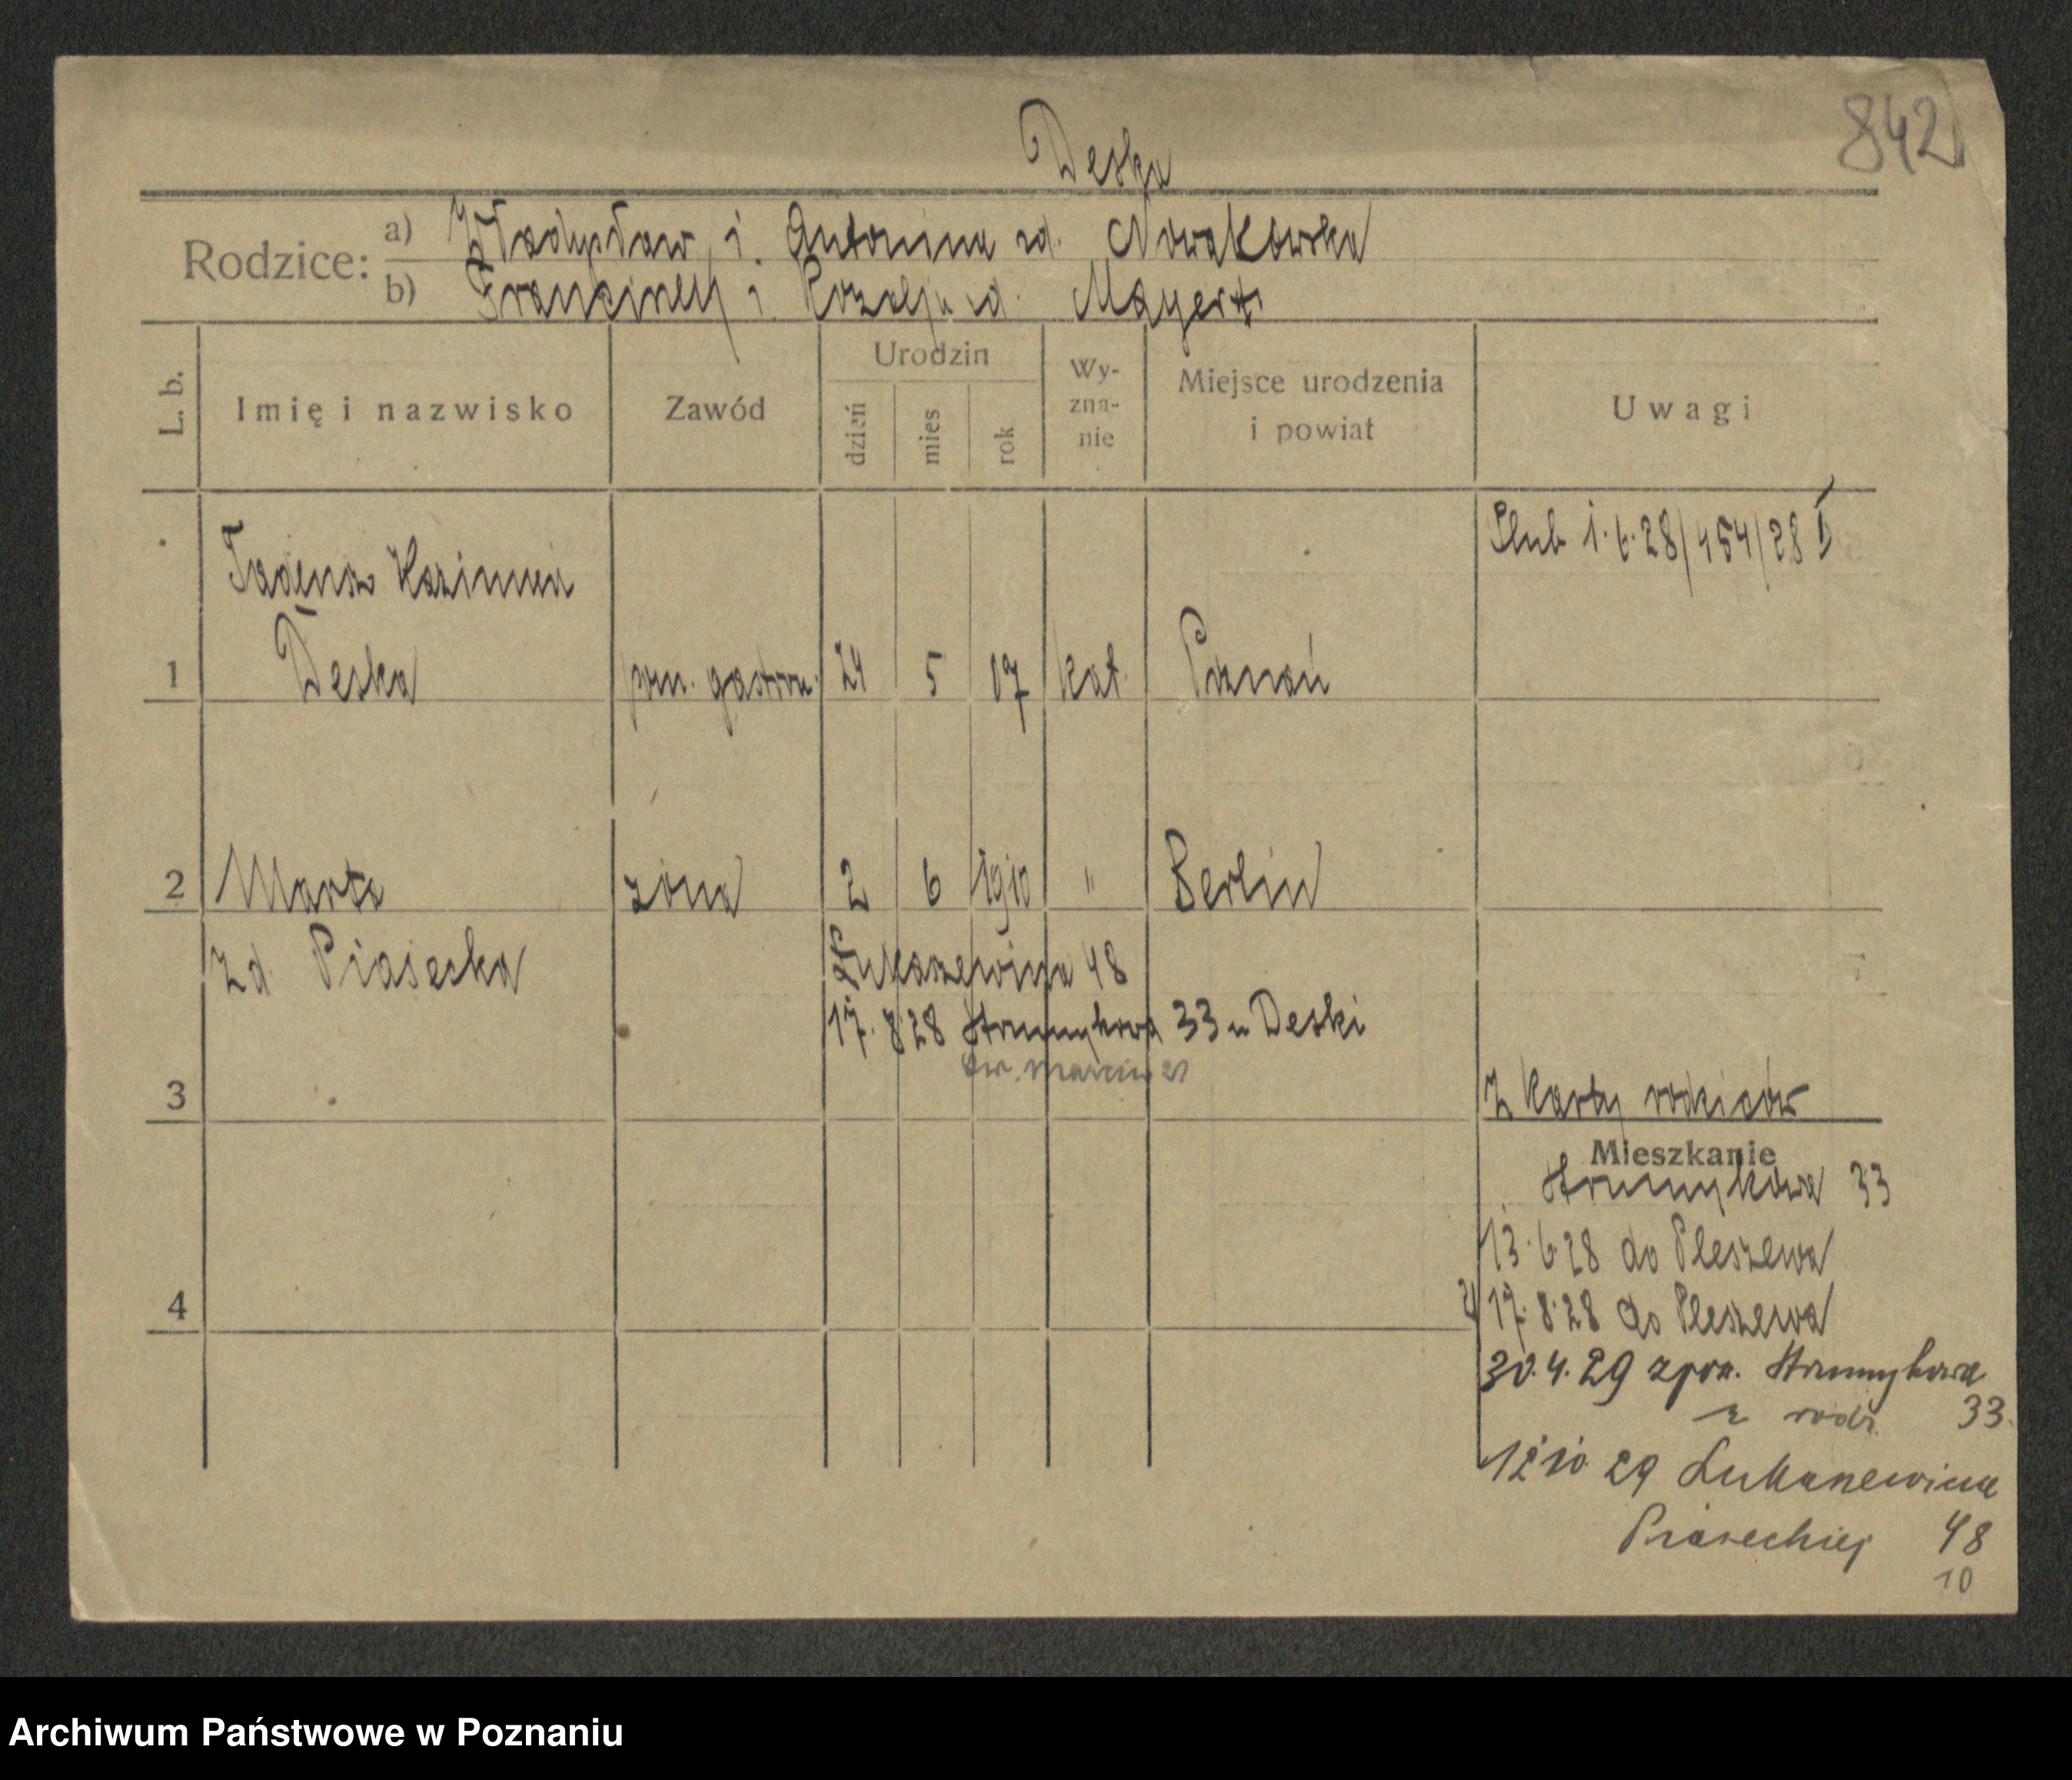 842
Deska
Rodzice:
a) Władysław i Antonina zd. Nowakowska
b) Franciszek i Rozalja zd. Mayer
L. b.
Imię i nazwisko
Zawód
Urodzin
dzień
mies
rok
Wy-
zna-
nie
Miejsce urodzenia
i powiat
Uwagi
Ślub 1.6.28/454/28 I
Tadeusz Kazimierz
1 Deska pom. gastron. 24 5 07 kat. Poznań
2 Marta żona 2 6 1910 " Berlin
zd Piasecka
Łukaszewicza 48
17.8.28 Strumykowa 33 u Deski
św. Marcin
3
Z karty rodziców
Mieszkanie
Strumykowa 33
13.6.28 do Pleszewa
4
2/ 17.8.28 do Pleszewa
30.4.29 zpow. Strumykowa
u rodz. 33.
12 10 29 Łukaszewicza
Piaseckiej 48
10
Archiwum Państwowe w Poznaniu